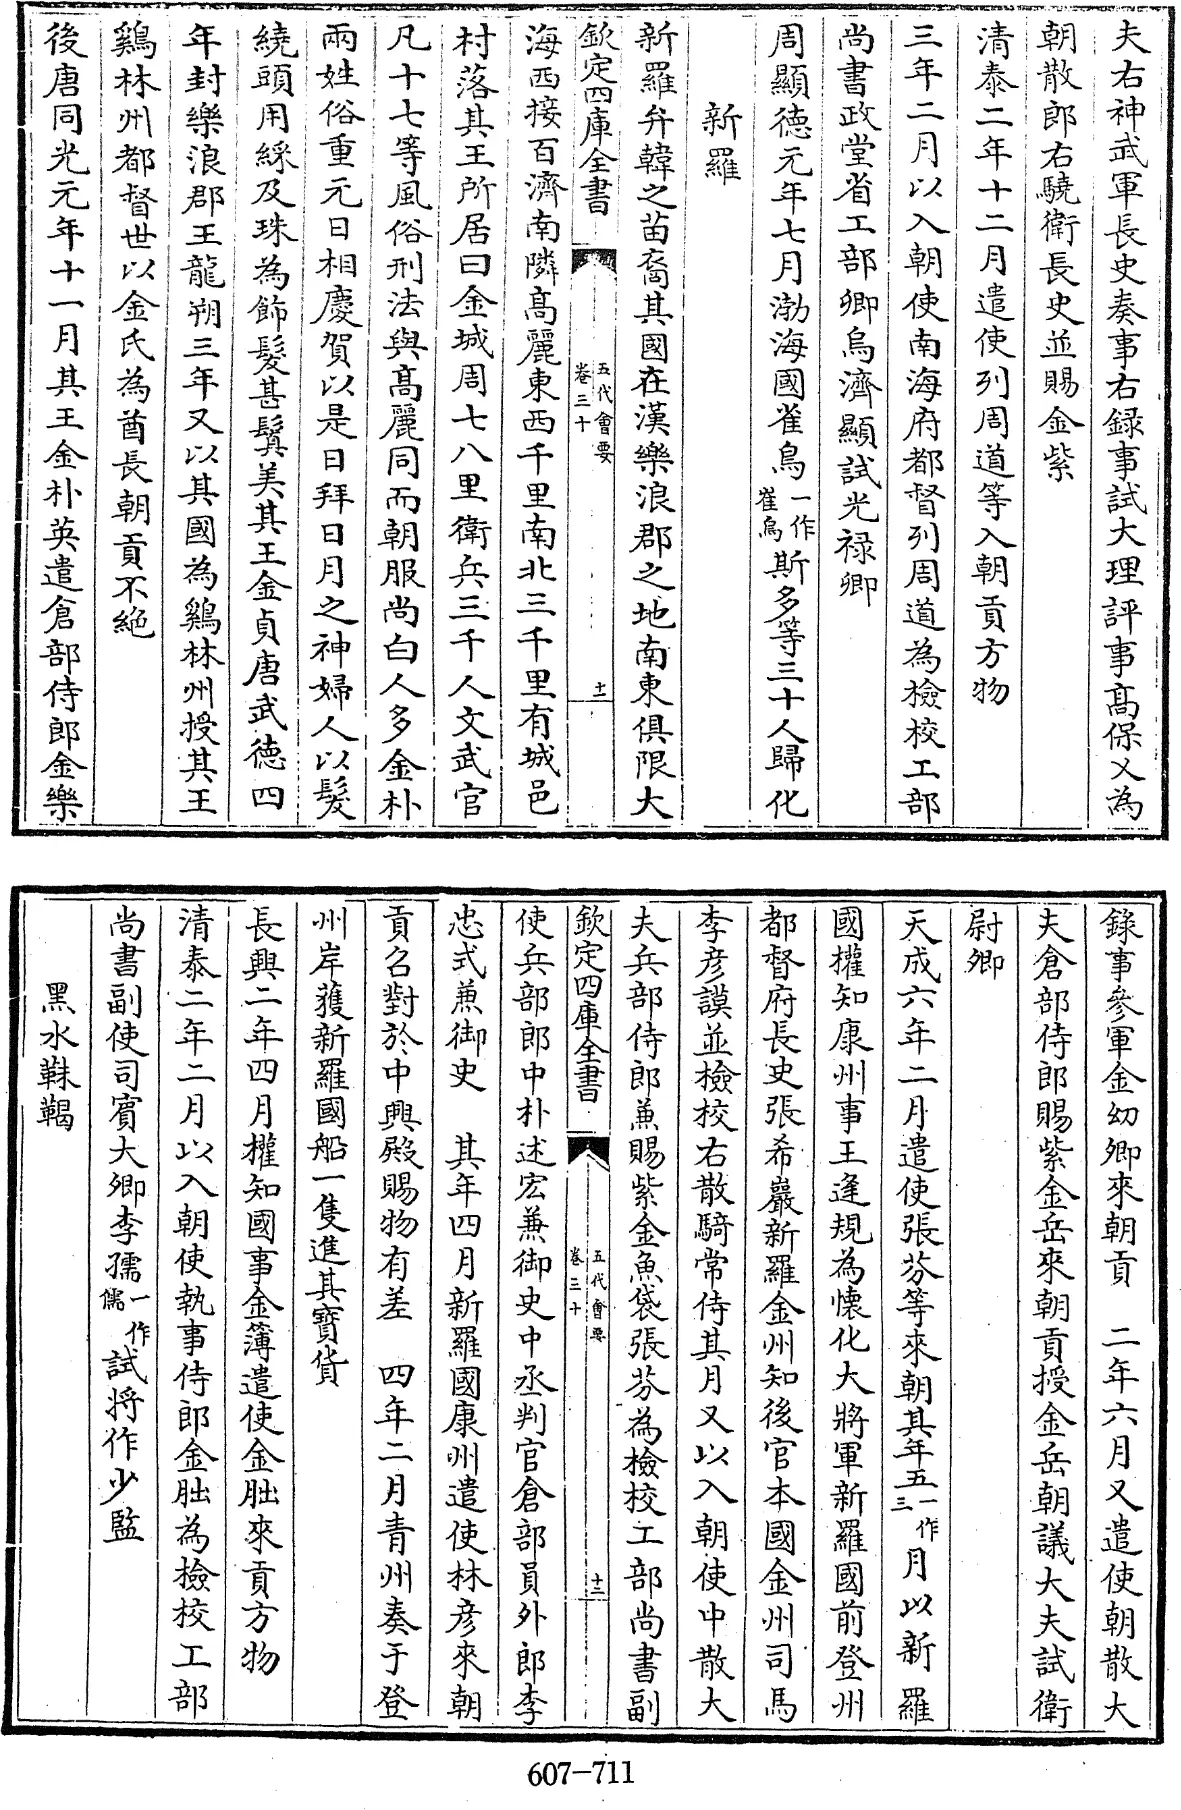 夫右神武軍長史奏事右録事試大理評事髙保乂為
朝散郎右驍衛長史並賜金紫
清泰二年十二月遣使列周道等入朝貢方物
三年二月以入朝使南海府都督列周道為檢校工部
尚書政堂省工部卿烏濟顯試光禄卿
周顯德元年七月渤海國雀烏一作崔烏斯多等三十人歸化
新羅
新羅弁韓之苗裔其國在漢樂浪郡之地南東俱限大
欽定四庫全書
五代會要
卷三十
十一
海西接百濟南隣髙麗東西千里南北三千里有城邑
村落其王所居曰金城周七八里衛兵三千人文武官
凡十七等風俗刑法與髙麗同而朝服尚白人多金朴
兩姓俗重元日相慶賀以是日拜日月之神婦人以髮
繞頭用綵及珠為飾髮甚鬒美其王金貞唐武德四
年封樂浪郡王龍朔三年又以其國為鷄林州授其王
鷄林州都督世以金氏為酋長朝貢不絶
後唐同光元年十一月其王金朴英遣倉部侍郎金樂
錄事參軍金幼卿來朝貢　二年六月又遣使朝散大
夫倉部侍郎賜紫金岳來朝貢授金岳朝議大夫試衛
尉卿
天成六年二月遣使張芬等來朝其年五一作三月以新羅
國權知康州事王逢規為懷化大將軍新羅國前登州
都督府長史張希巖新羅金州知後官本國金州司馬
李彦謨並檢校右散騎常侍其月又以入朝使中散大
夫兵部侍郎兼賜紫金魚袋張芬為檢校工部尚書副
欽定四庫全書
五代會要
卷三十
十二
使兵部郎中朴述宏兼御史中丞判官倉部員外郎李
忠式兼御史　其年四月新羅國康州遣使林彦來朝
貢名對於中興殿賜物有差　四年二月青州奏于登
州岸獲新羅國船一隻進其寳貨
長興二年四月權知國事金簿遣使金朏來貢方物
清泰二年二月以入朝使執事侍郎金朏為檢校工部
尚書副使司賓大卿李孺一作儒試將作少監
黑水靺鞨
607-711